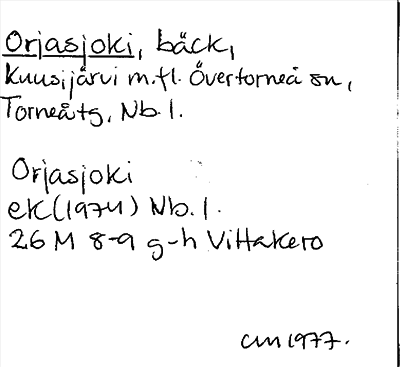 Orjasjoki, bäck,
Kuusijärvi m.fl. Övertorneå sn,
Torneåtg, Nb.l.
Orjasjoki
ek(1974) Nb.l.
26 M 8-9 g-h Vittakero
cm 1977.